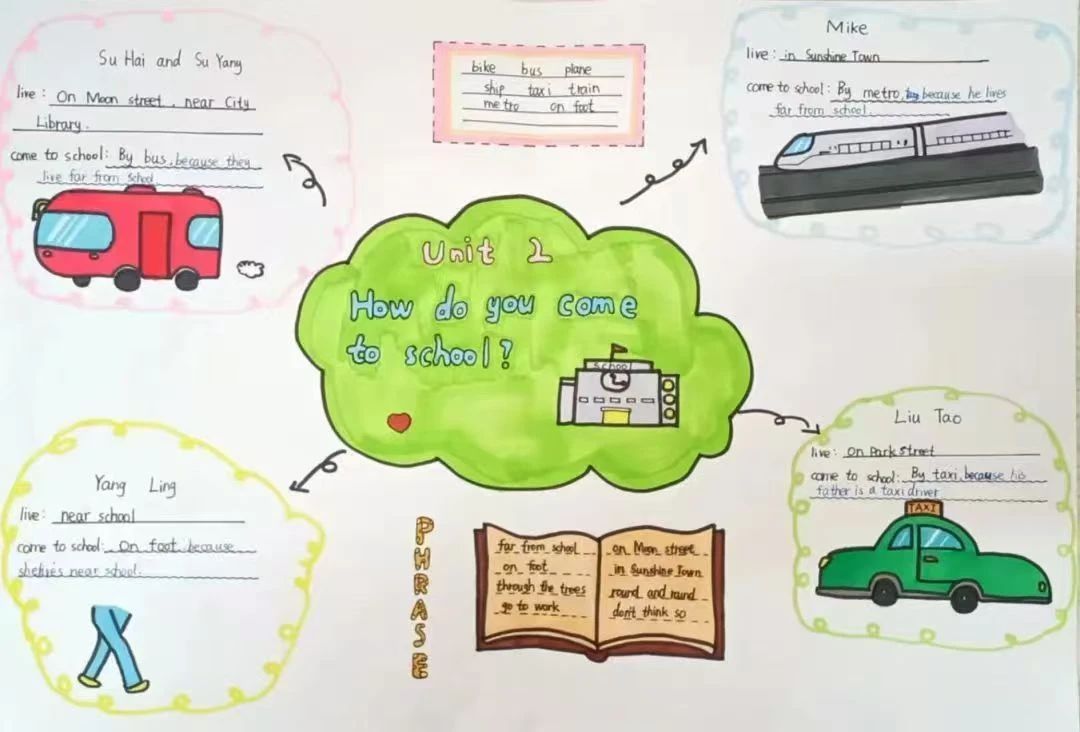 Su Hai and Su Yang
live: On Moon street, near City
Library.
come to school: By bus, because they
live far from school
bike bus plane
ship taxi train
metro on foot
Mike
live: in Sunshine Town
come to school: By metro, because he lives
far from school
Unit 2
How do you come
to school?
school
Yang Ling
live: near school
come to school: On foot because
she lives near school.
Liu Tao
live: on Park street
come to school: By taxi, because his
father is a taxi driver
TAXI
PHRASE
far from school
on foot
through the trees
go to work
on Moon street
in Sunshine Town
round and round
don't think so